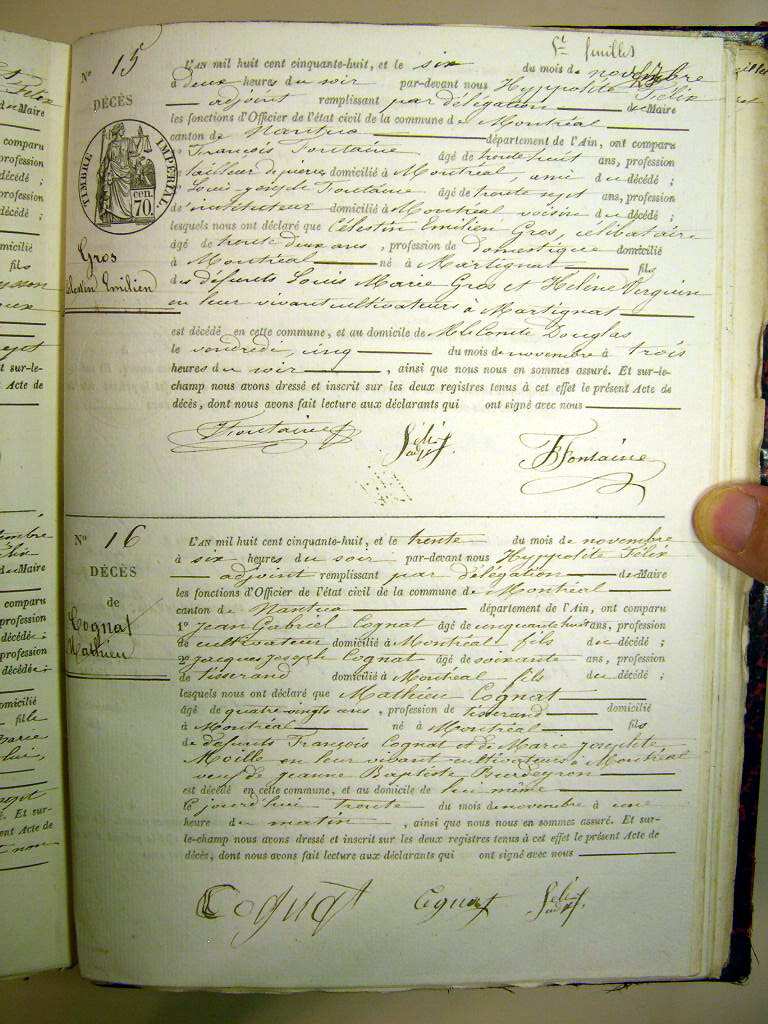 5e feuillet
N° 15
DÉCÈS
TIMBRE IMPÉRIAL
cen. 70
Gros
Célestin Emilien
L'AN mil huit cent cinquante-huit, et le six du mois de novembre
à deux heures du soir par-devant nous Hyppolite Félix
adjoint remplissant par délégation de Maire
les fonctions d'Officier de l'état civil de la commune de Montréal
canton de Nantua département de l'Ain, ont comparu
1° François Fontaine âgé de trente huit ans, profession
tailleur de pierres domicilié à Montréal, ami du décédé ;
2° Louis joseph Fontaine âgé de trente sept ans, profession
d'instituteur domicilié à Montréal voisin du décédé ;
lesquels nous ont déclaré que Célestin Emilien Gros, célibataire
âgé de trente deux ans, profession de domestique domicilié
à Montréal né à Martignat fils
des défunts Louis Marie Gros et Hélène Verguin
en leur vivant cultivateurs à Martignat
est décédé en cette commune, et au domicile de M. le Comte Douglas
le vendredi cinq du mois de novembre à trois
heures du soir, ainsi que nous nous en sommes assuré. Et sur-le-
champ nous avons dressé et inscrit sur les deux registres tenus à cet effet le présent Acte de
décès, dont nous avons fait lecture aux déclarants qui ont signé avec nous
Fontaine Félix adj. Fontaine
N° 16
DÉCÈS
de
Cognat
Mathieu
L'AN mil huit cent cinquante-huit, et le trente du mois de novembre
à six heures du soir par-devant nous Hyppolite Félix
adjoint remplissant par délégation de Maire
les fonctions d'Officier de l'état civil de la commune de Montréal
canton de Nantua département de l'Ain, ont comparu
1° Jean Gabriel Cognat âgé de cinquante huit ans, profession
de cultivateur domicilié à Montréal fils du décédé ;
2° Jacques Joseph Cognat âgé de soixante ans, profession
de tisserand domicilié à Montréal fils du décédé ;
lesquels nous ont déclaré que Mathieu Cognat
âgé de quatre vingts ans, profession de tisserand domicilié
à Montréal né à Montréal fils
de défunts François Cognat et de Marie Josephte
Moille en leur vivant cultivateurs à Montréal
veuf de Jeanne Baptiste Burdeyron
est décédé en cette commune, et au domicile de lui même
le jourd'hui trente du mois de novembre à une
heure du matin, ainsi que nous nous en sommes assuré. Et sur-
le-champ nous avons dressé et inscrit sur les deux registres tenus à cet effet le présent Acte de
décès, dont nous avons fait lecture aux déclarants qui ont signé avec nous
Cognat Cognat Félix adj.